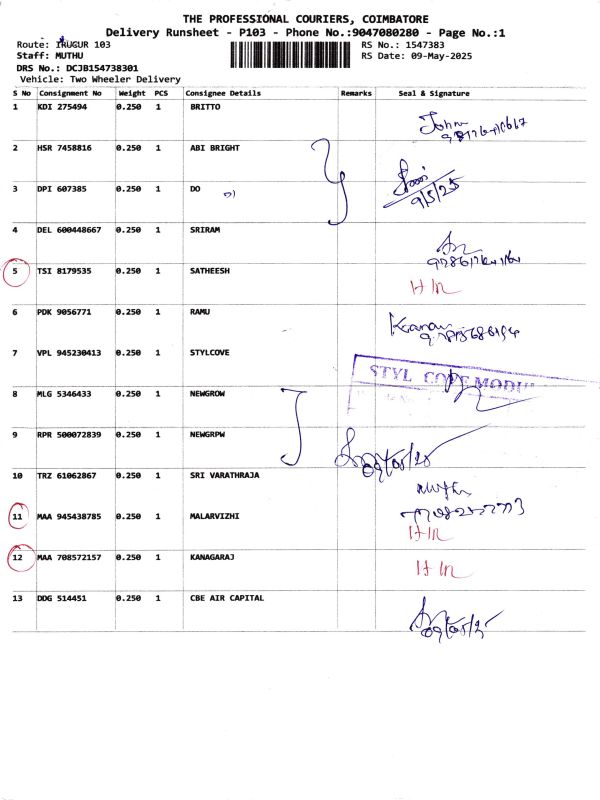 THE PROFESSIONAL COURIERS, COIMBATORE
Delivery Runsheet - P103 - Phone No.:9047080280 - Page No.:1
Route: IRUGUR 103
RS No.: 1547383
Staff: MUTHU
RS Date: 09-May-2025
DRS No.: DCJB154738301
Vehicle: Two Wheeler Delivery
S No Consignment No Weight PCS Consignee Details Remarks Seal & Signature
1 KDI 275494 0.250 1 BRITTO
John
2 HSR 7458816 0.250 1 ABI BRIGHT
3 DPI 607385 0.250 1 DO
9/5/25
4 DEL 600448667 0.250 1 SRIRAM
5 TSI 8179535 0.250 1 SATHEESH
6 PDK 9056771 0.250 1 RAMU
7 VPL 945230413 0.250 1 STYLCOVE
8 MLG 5346433 0.250 1 NEWGROW
9 RPR 500072839 0.250 1 NEWGRPW
09/05/25
10 TRZ 61062867 0.250 1 SRI VARATHRAJA
11 MAA 945438785 0.250 1 MALARVIZHI
12 MAA 708572157 0.250 1 KANAGARAJ
13 DDG 514451 0.250 1 CBE AIR CAPITAL
09/05/25